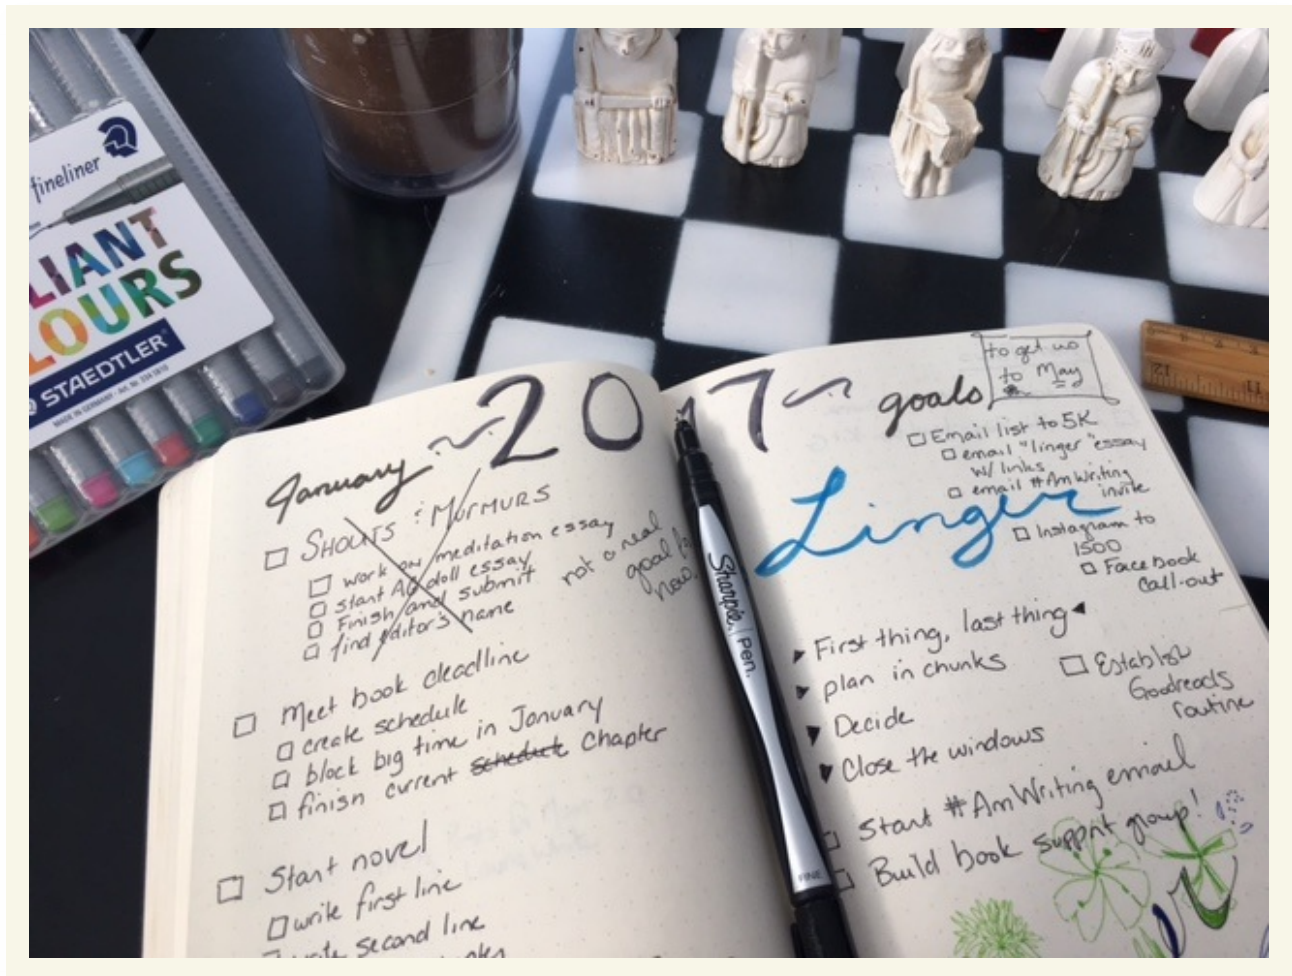 fineliner
LIANT
LOURS
STAEDTLER
MADE IN GERMANY
2017
January
SHOUTS & MURMURS
work on meditation essay
start AG doll essay
Finish and submit
find editor's name
not a real
goal for
now.
Meet book deadline
create schedule
block big time in January
finish current schedule Chapter
Start novel
write first line
write second line
goals
to get us
to May
Email list to 5K
email "linger" essay
w/ links
email #AmWriting
invite
Linger
Instagram to
1500
Facebook
call-out
First thing, last thing
plan in chunks
Decide
Close the windows
Establish
Goodreads
routine
Start #AmWriting email
Build book support group!
Sharpie. PEN.
FINE
11
12